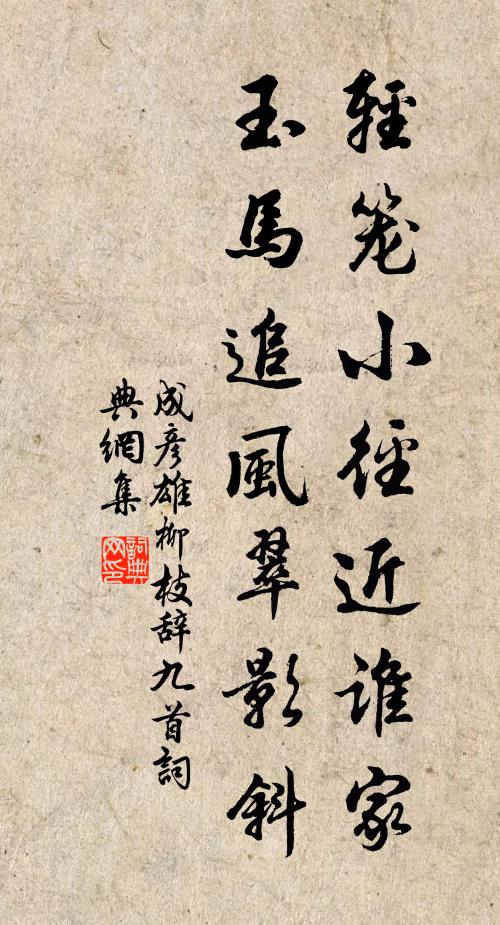 輕笼小徑近誰家
玉馬追風翠影斜
成彦雄柳枝辞九首詞
典網集
詞典网印